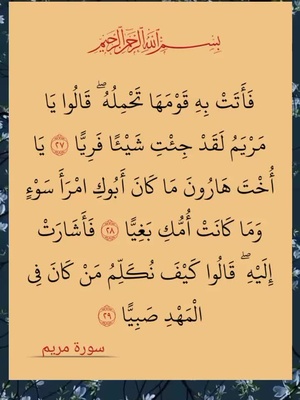 بِسْمِ اللَّهِ الرَّحْمَٰنِ الرَّحِيمِ
فَأَتَتْ بِهِ قَوْمَهَا تَحْمِلُهُ ۖ قَالُوا يَا
مَرْيَمُ لَقَدْ جِئْتِ شَيْئًا فَرِيًّا ٢٧ يَا
أُخْتَ هَارُونَ مَا كَانَ أَبُوكِ امْرَأَ سَوْءٍ
وَمَا كَانَتْ أُمُّكِ بَغِيًّا ٢٨ فَأَشَارَتْ
إِلَيْهِ ۖ قَالُوا كَيْفَ نُكَلِّمُ مَنْ كَانَ فِي
الْمَهْدِ صَبِيًّا ٢٩
سورة مريم